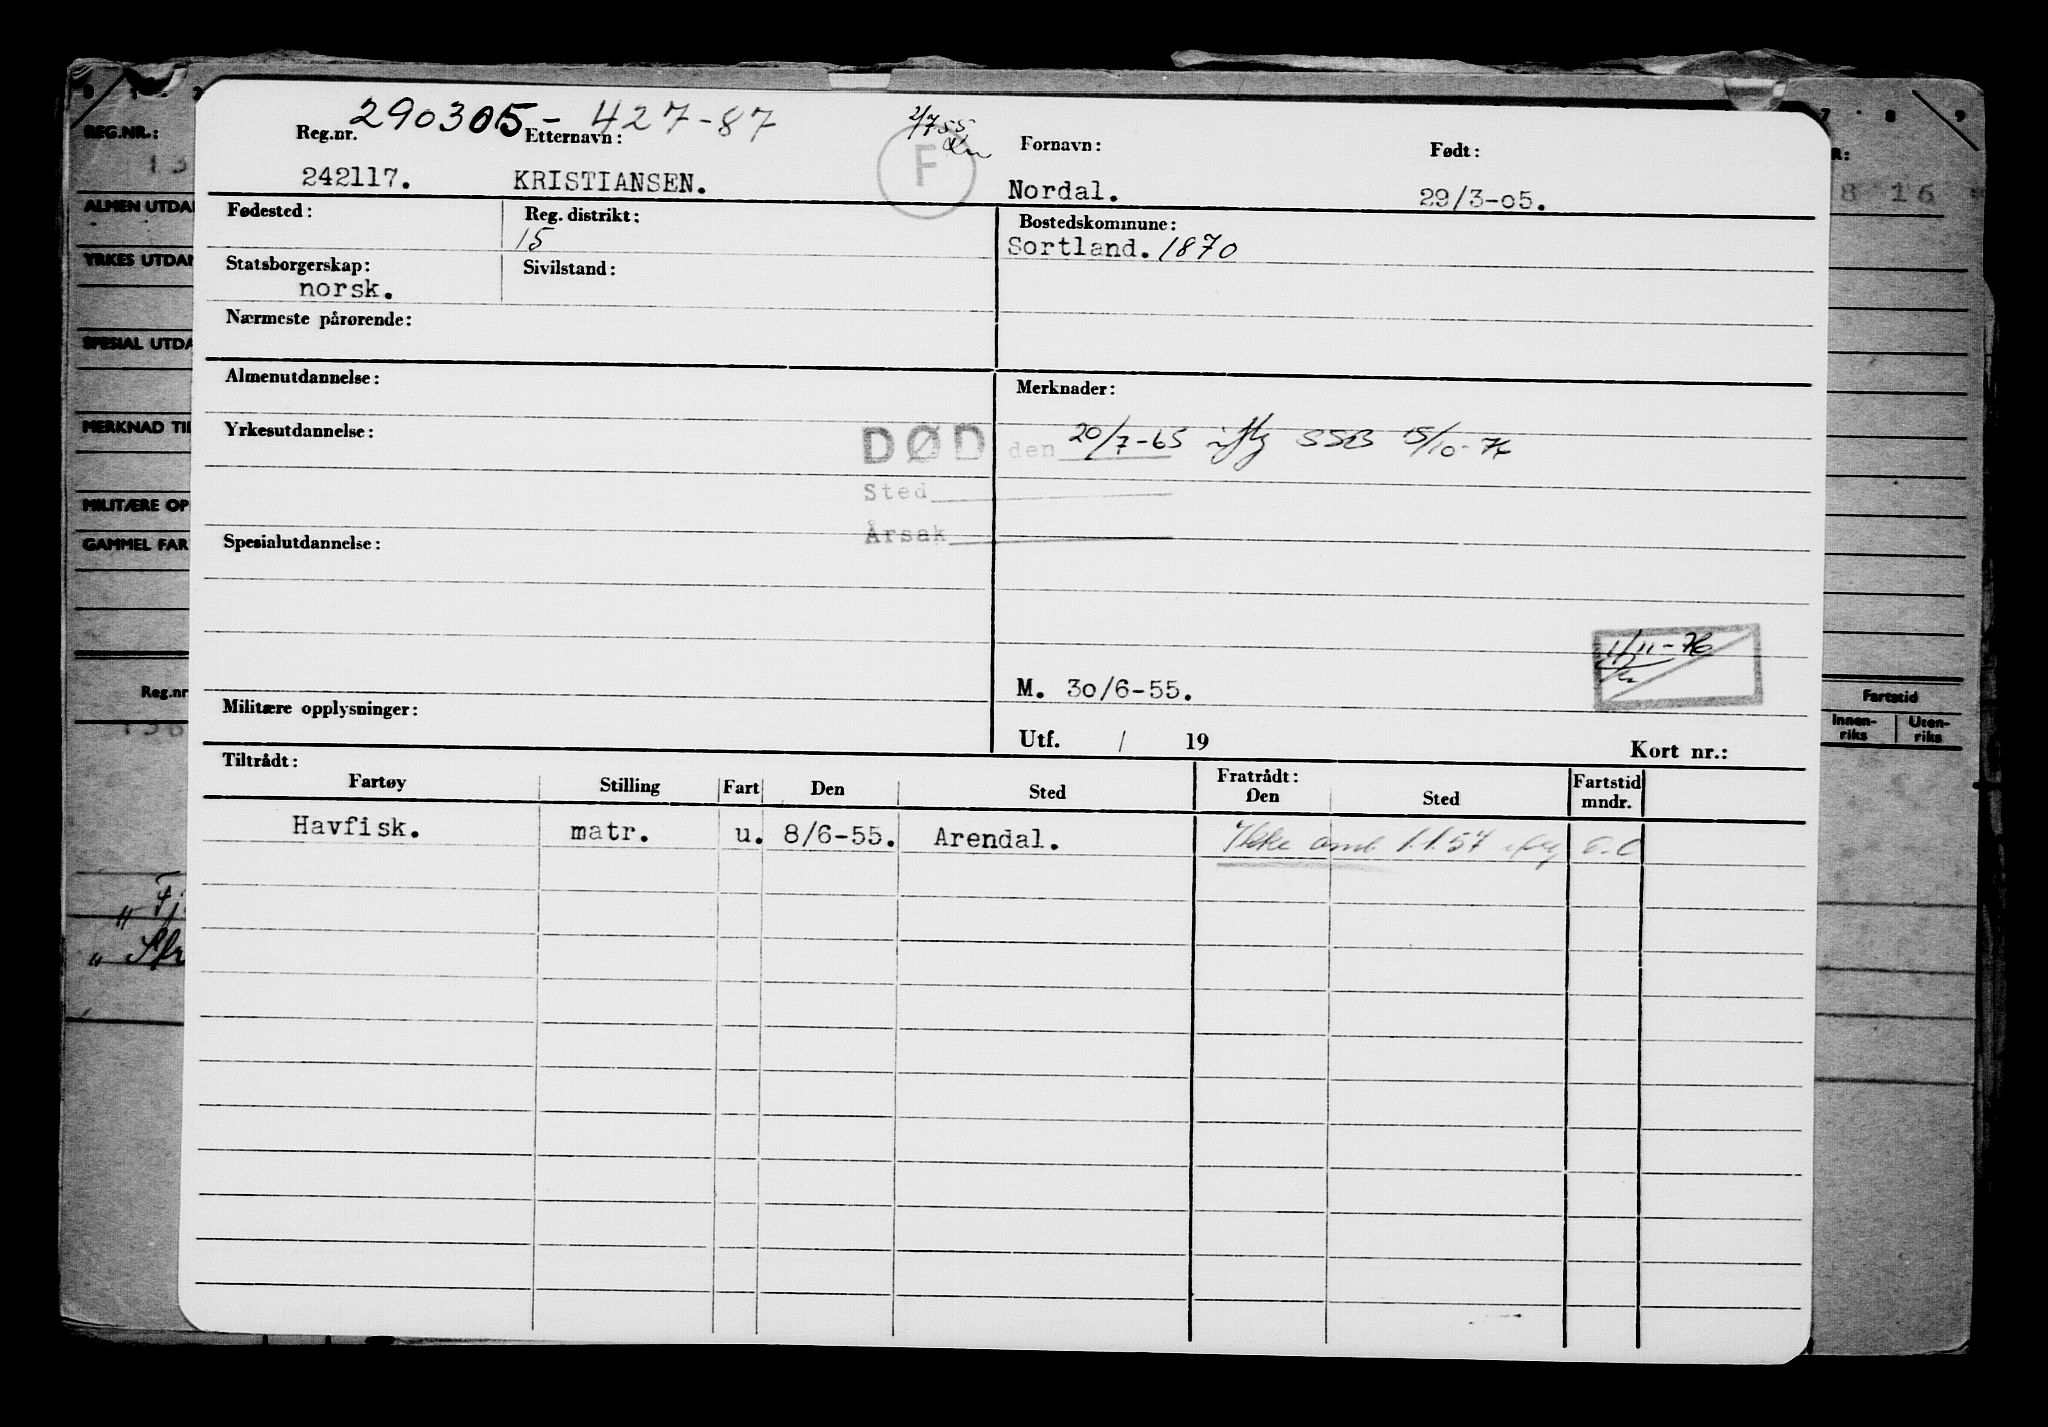 290305 - 427-87
2/7 55
Reg.nr. Etternavn: Fornavn: Født:
F
242117. KRISTIANSEN. Nordal. 29/3-05.
Fødested: Reg. distrikt: Bostedskommune:
15 Sortland. 1870
Statsborgerskap: Sivilstand:
norsk.
Nærmeste pårørende:
Almenutdannelse: Merknader:
Yrkesutdannelse:
DØD den 20/7-65 iflg SSB 15/10-76
Sted
Årsak
Spesialutdannelse:
11/11-76
M. 30/6-55.
Militære opplysninger:
Utf. / 19 Kort nr.:
Tiltrådt: Fratrådt: Fartstid
Fartøy Stilling Fart Den Sted Den Sted mndr.
Havfisk. matr. u. 8/6-55. Arendal. Ikke omb 1.1.57
REG.NR.:
ALMEN UTDA
YRKES UTDAN
SPESIAL UTDA
MERKNAD TIL
MILITÆRE OP
GAMMEL FAR
Reg.nr
7 8 9
R:
8 16
Fartstid
Innen-
riks
Uten-
riks